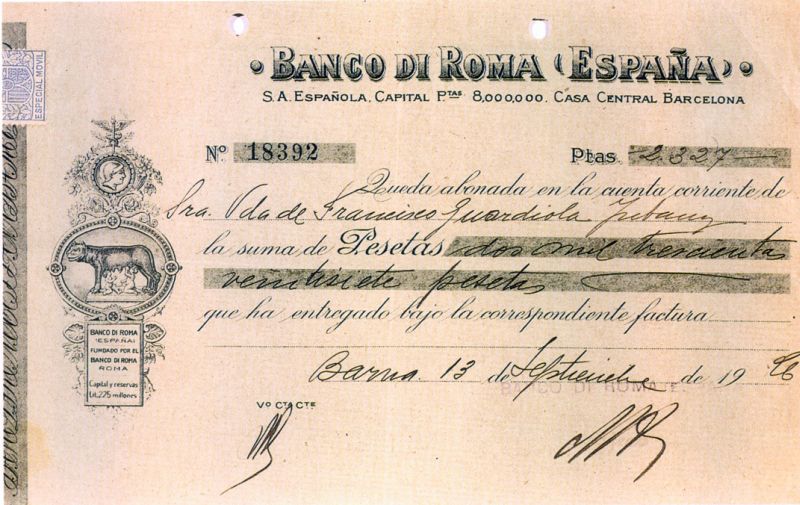 ESPECIAL MOVIL
BANCO DI ROMA (ESPAÑA)
S.A. ESPAÑOLA. CAPITAL PTAS 8,000,000. CASA CENTRAL BARCELONA
Nº 18392 Ptas. 2.327
Queda abonada en la cuenta corriente de
Sra. Vda de Francisco Guardiola
la suma de Pesetas dos mil trescientas
veintisiete pesetas
que ha entregado bajo la correspondiente factura
Barna. 13 de Septiembre de 19
BANCO DI ROMA
Vº CTA CTE
BANCO DI ROMA
(ESPAÑA)
FUNDADO POR EL
BANCO DI ROMA
ROMA
Capital y reservas
Lit. 225 millones